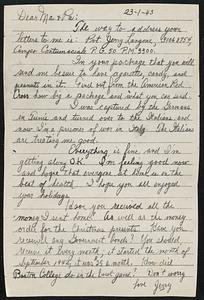 Dear Ma & Pa: 23-1-43
The way to address your
letters to me is: Pvt. Jerry
Campo Concentramento P.G. 59 P.M. 3300.
In your package that you will
send me besure to have cigarettes, candy, and
peanuts in it. Find out from the American Red
Cross how big a package and what you can send.
I was captured by the Germans
in Tunis and turned over to the Italians and
now I'm a prisoner of war in Italy. The Italians
are treating me good.
Everything is fine and I'm
getting along O.K. I'm feeling good now
and hope that everyone at home is in the
best of health. I hope you all enjoyed
your holidays.
Have you received all the
money I sent home? As well as the money
order for the Christmas presents. Have you
received any Government bonds? You should
receive it every month, it started the month of
September 1942, it was 25 a month. How did
Boston College do in the bowl game? Don't worry
love Jerry